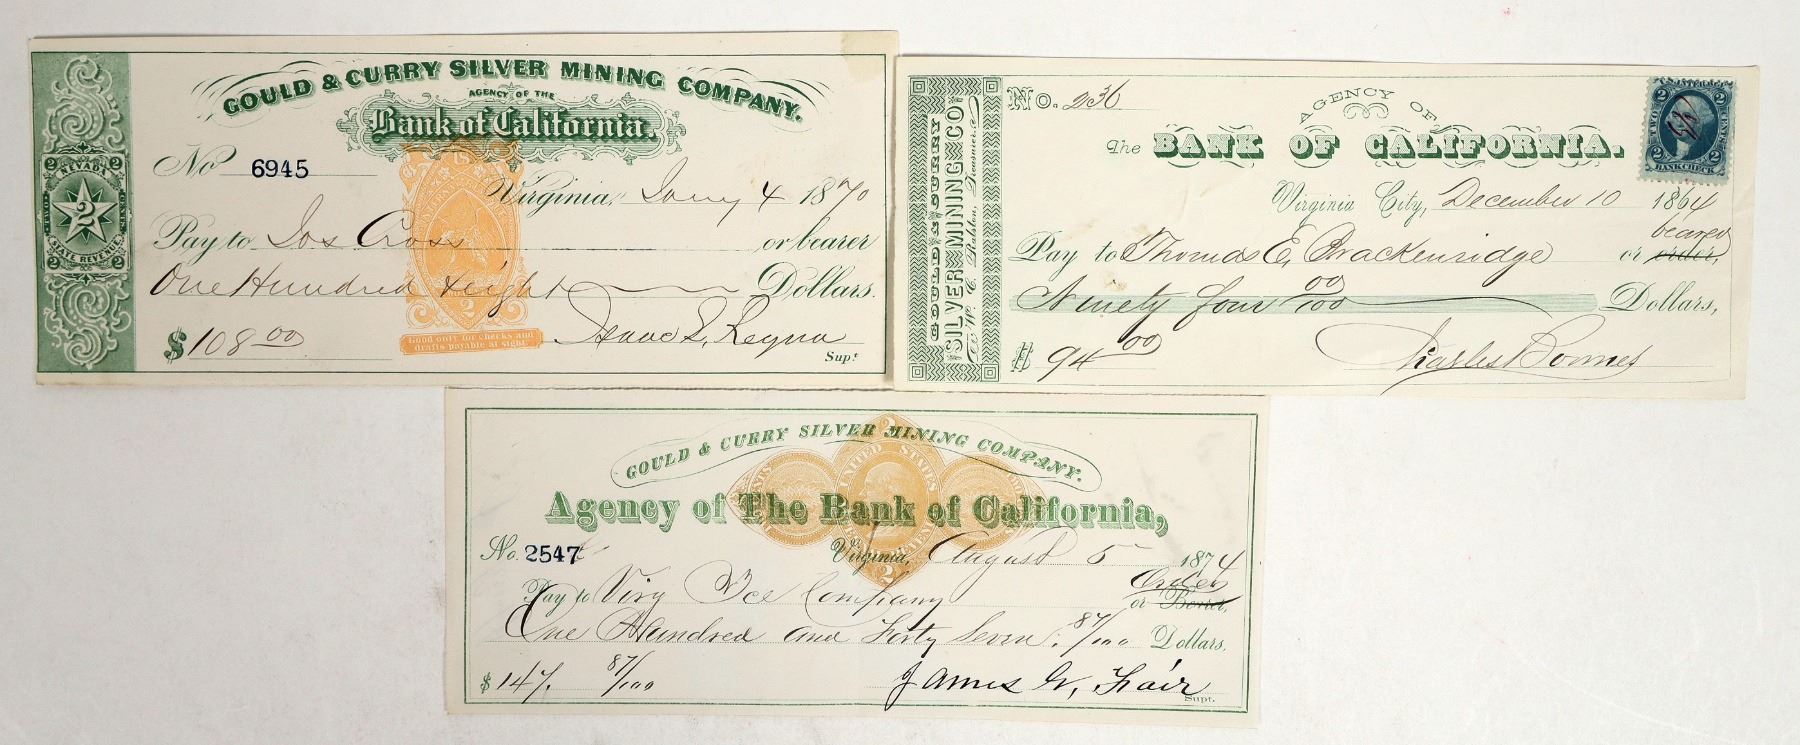 GOULD & CURRY SILVER MINING COMPANY.
AGENCY OF THE
Bank of California.
No 6945
Virginia, Jany 4 1870
Pay to Jos Cross or bearer
One Hundred & eight Dollars.
$ 108 00
Isaac L. Requa
Supt
2 NEVADA 2
TWO
2
CENTS
STATE REVENUE
2 2
U.S.
2
Good only for checks and
drafts payable at sight.
GOULD & CURRY
SILVER MINING CO.
No. 236
AGENCY OF
The BANK OF CALIFORNIA.
Virginia City, December 10 1864
bearer
Pay to Thomas E, Brackenridge or order,
Ninety four 00/100 Dollars,
$ 94 00
Charles Bonner
U.S. INTER. REV.
2 2
TWO CENTS
2 2
BANK CHECK
GOULD & CURRY SILVER MINING COMPANY.
Agency of The Bank of California,
No. 2547
Virginia, August 5 1874
Order
Pay to Virg Ice Company or Bearer,
One Hundred and Forty Seven. 87/100 Dollars.
$ 147. 87/100
James G. Fair
Supt.
2
UNITED STATES
2